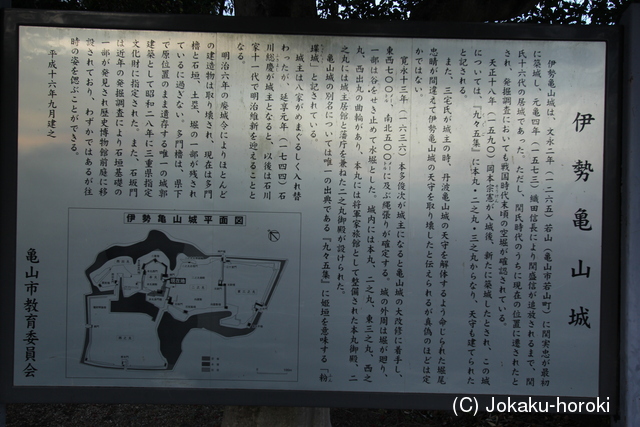 伊勢亀山城
伊勢亀山城は、文永二年（一二六五）若山（亀山市若山町）に関実忠が最初
に築城し、元亀四年（一五七三）織田信長により関盛信が追放されるまで、関
氏十六代の居城であった。ただし、関氏時代のうちに現在の位置に遷されたと
され、発掘調査においても戦国時代末頃の空堀が確認されている。
天正十八年（一五九〇）岡本宗憲が入城後、新たに築城したとされ、この城
については、『九々五集』に本丸・二之丸・三之丸からなり、天守も建てられた
と記される。
また、三宅氏が城主の時、丹波亀山城の天守を解体するよう命じられた堀尾
忠晴が間違えて伊勢亀山城の天守を取り壊したと伝えられるが真偽のほどは定
かではない。
寛永十三年（一六三六）本多俊次が城主になると亀山城の大改修に着手し、
東西七〇〇㍍、南北五〇〇㍍に及ぶ縄張りが確定する。城の外周は堀が廻り、
一部は谷をせき止めて水堀とした。城内には本丸、二之丸、東三之丸、西之
丸、西出丸の曲輪があり、本丸には将軍家旅館として整備された本丸御殿、二
之丸には城主居館と藩庁を兼ねた二之丸御殿が設けられた。
亀山城の別名については唯一の出典である『九々五集』に姫垣を意味する「粉
堞城」と記されている。
城主は八家がめまぐるしく入れ替
わったが、延享元年（一七四四）石
川総慶が城主となると、以後は石川
家十一代で明治維新を迎えることと
なる。
明治六年の廃城令によりほとんど
の建造物は取り壊され、現在は多門
櫓と石垣、土塁、堀の一部が残され
ているに過ぎない。多門櫓は、県下
で原位置のまま遺存する唯一の城郭
建築として昭和二八年に三重県指定
文化財に指定された。また、石坂門
は近年の発掘調査により石垣基礎の
一部が発見され歴史博物館前庭に移
設されており、わずかではあるが往
時の姿を偲ぶことができる。
平成十六年九月建之
亀山市教育委員会
伊勢亀山城平面図
(C) Jokaku-horoki